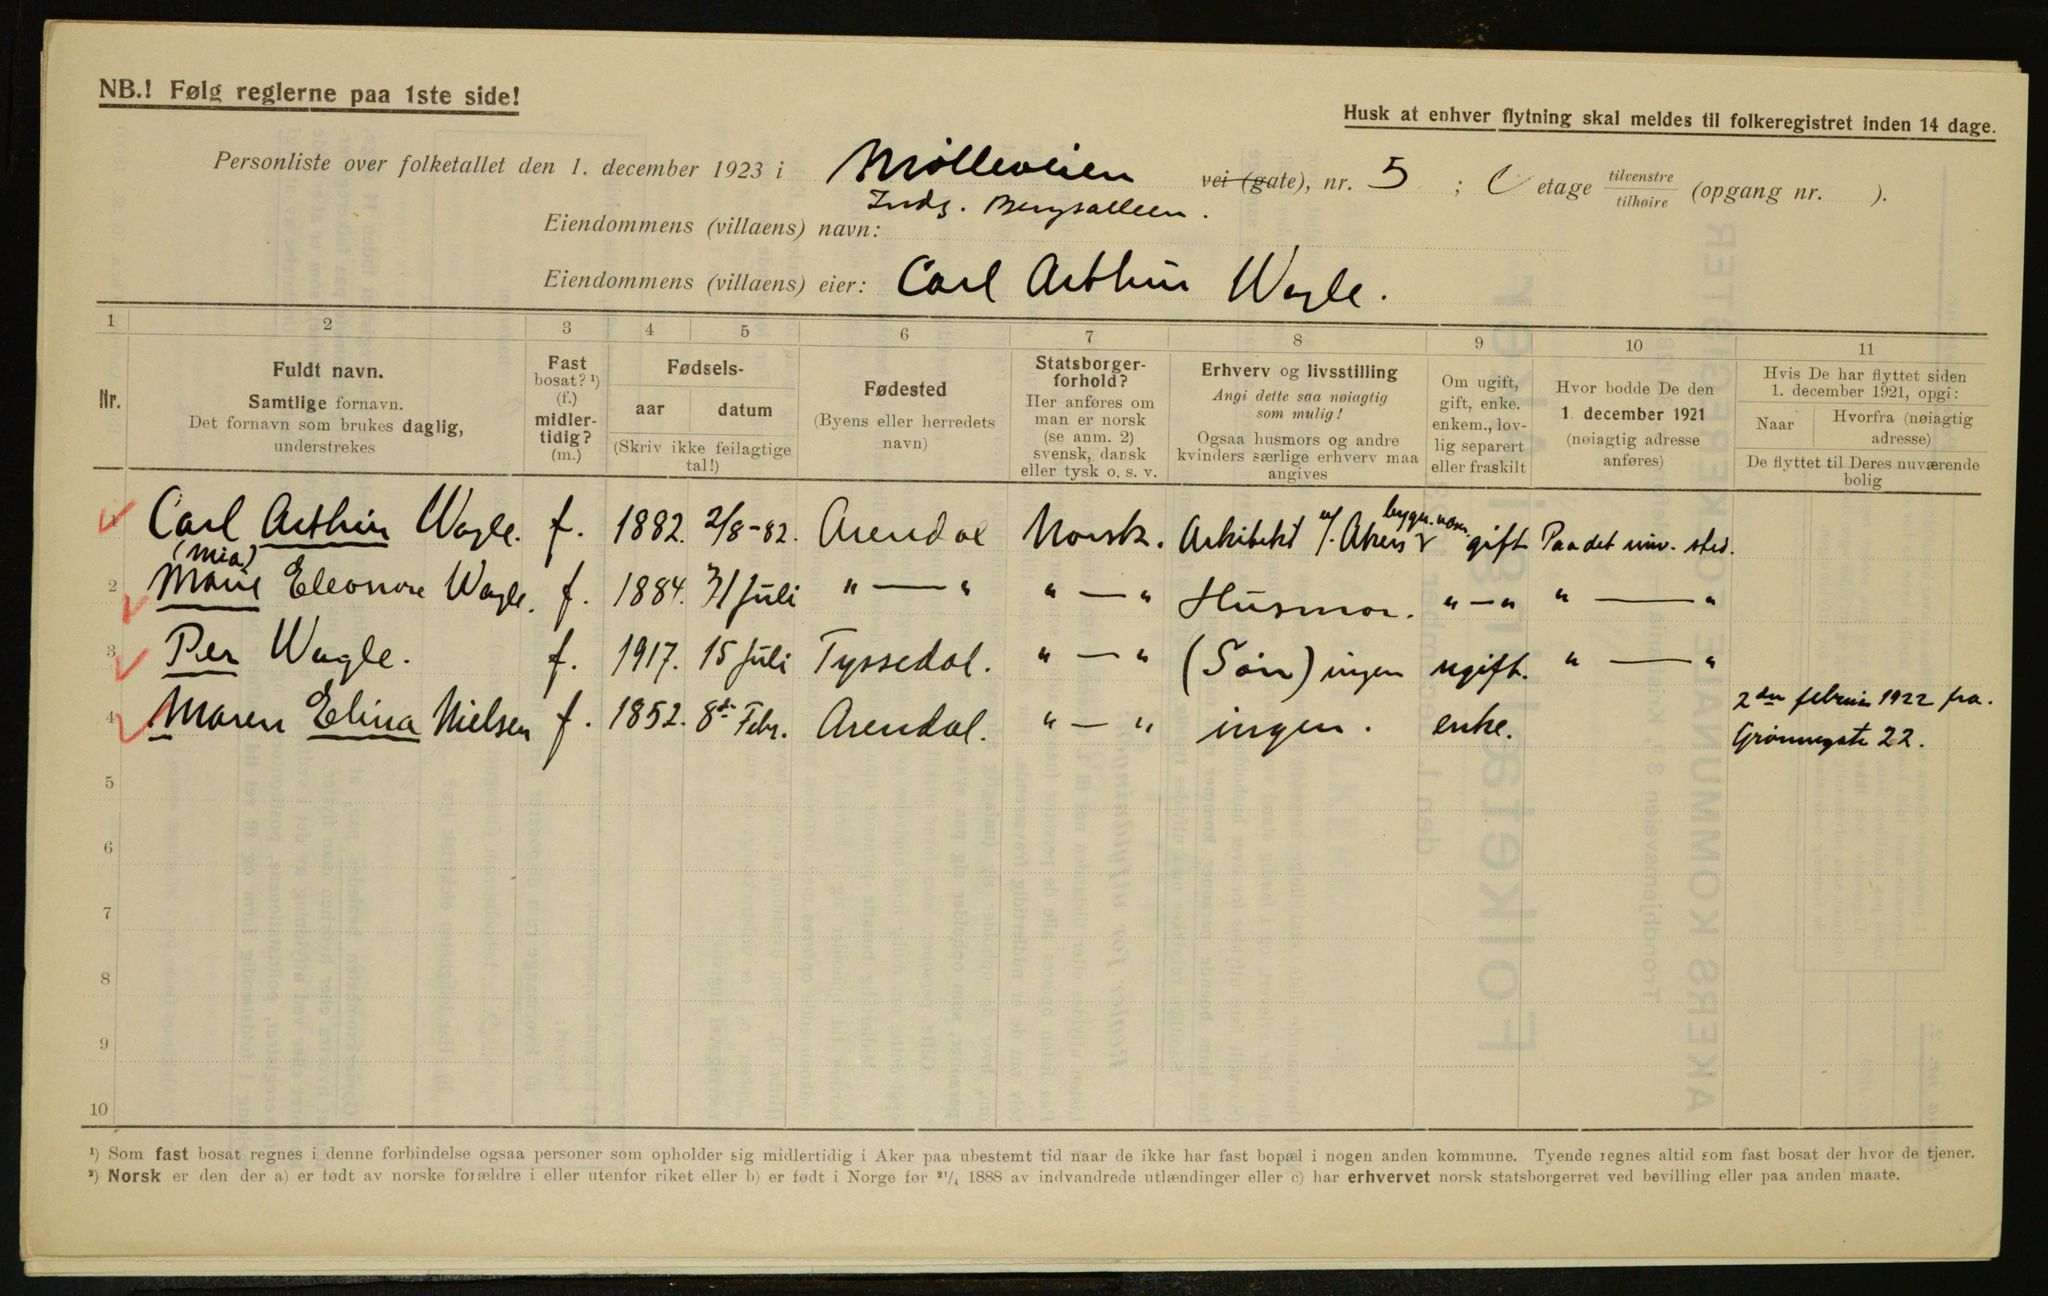 NB.! Følg reglerne paa 1ste side!
Husk at enhver flytning skal meldes til folkeregistret inden 14 dage.
Personliste over folketallet den 1. december 1923 i Mølleveien vei (gate), nr. 5 ; etage tilvenstre tilhøire (opgang nr. ).
Indg. Bergsalleen.
Eiendommens (villaens) navn:
Eiendommens (villaens) eier: Carl Arthur Wagle.
1 2 3 4 5 6 7 8 9 10 11
Nr.
Fuldt navn.
Samtlige fornavn.
Det fornavn som brukes daglig,
understrekes
Fast
bosat? ¹)
(f.)
midler-
tidig?
(m.)
Fødsels-
aar datum
(Skriv ikke feilagtige
tal!)
Fødested
(Byens eller herredets
navn)
Statsborger-
forhold?
Her anføres om
man er norsk
(se anm. 2)
svensk, dansk
eller tysk o. s. v.
Erhverv og livsstilling
Angi dette saa nøiagtig
som mulig!
Ogsaa husmors og andre
kvinders særlige erhverv maa
angives
Om ugift,
gift, enke.
enkem., lov-
lig separert
eller fraskilt
Hvor bodde De den
1. december 1921
(nøiagtig adresse
anføres)
Hvis De har flyttet siden
1. december 1921, opgi:
Naar Hvorfra (nøiagtig
adresse)
De flyttet til Deres nuværende
bolig
Carl Arthur Wagle. f. 1882. 2/8-82. Arendal Norsk. Arkitekt v/. Akers bygn.væsen gift Paa det nuv. sted.
(Mia)
2 Marie Eleonore Wagle. f. 1884. 31 Juli " — " " — " Husmor. " — " " — "
3 Per Wagle. f. 1917. 15 Juli Tyssedal. " — " (Søn) ingen ugift. " — "
4 Maren Elina Nielsen f. 1852. 8de Febr. Arendal. " — " ingen. enke. 2den februar 1922 fra.
Grønnegate 22.
5
6
7
8
9
10
¹) Som fast bosat regnes i denne forbindelse ogsaa personer som opholder sig midlertidig i Aker paa ubestemt tid naar de ikke har fast bopæl i nogen anden kommune. Tyende regnes altid som fast bosat der hvor de tjener.
²) Norsk er den der a) er født av norske forældre i eller utenfor riket eller b) er født i Norge før ²¹/₄ 1888 av indvandrede utlændinger eller c) har erhvervet norsk statsborgerret ved bevilling eller paa anden maate.